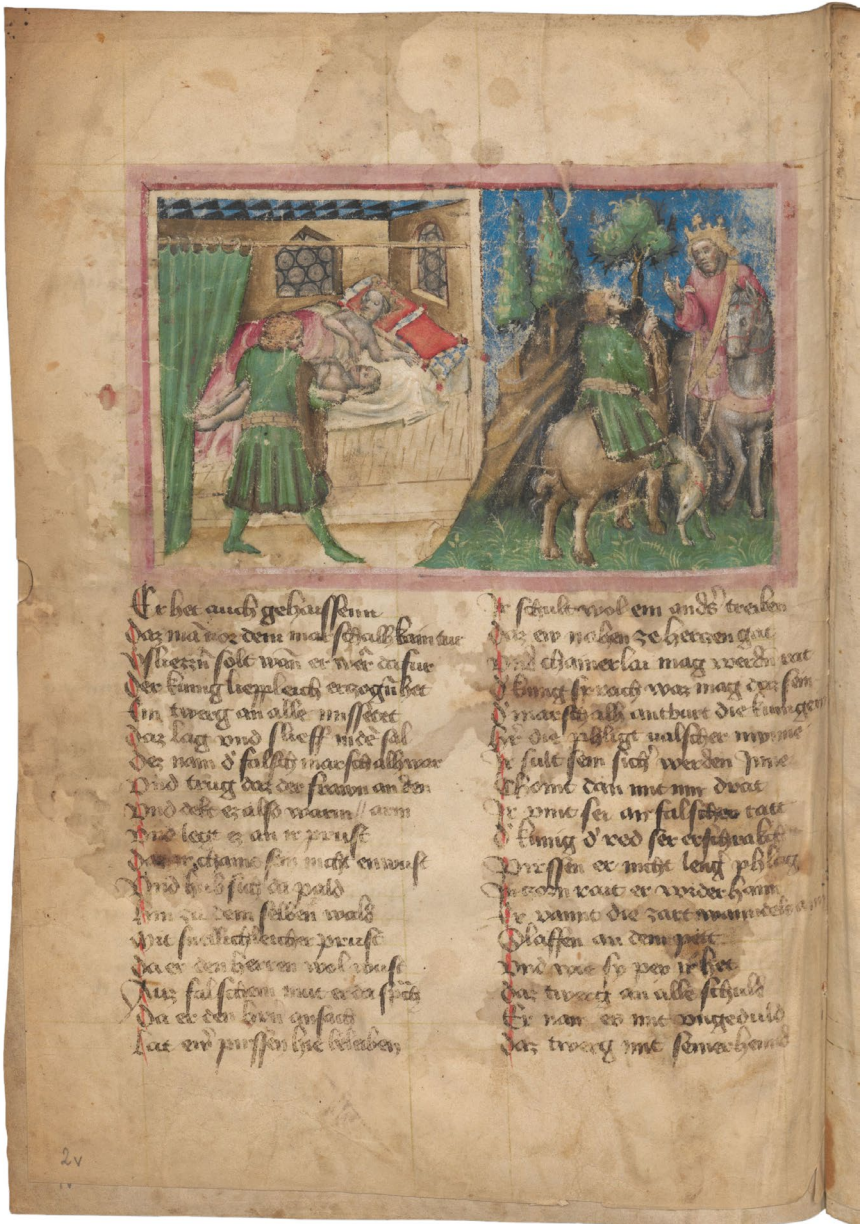 Er het auch gehaissenn
Daz man vor dem marschalh kain tur
Vsliezzn solt wan er wer da fur
Der kunig liepleich erzogn het
Ein twerg an alle missetet
Daz lag vnd slieff in dem sal
Dez nam d' falsch marschalh war
Vnd trug daz der frawn an den
Vnd dekt ez also warm // arm
Vnd legt ez an ir prust
Daz ir chaine sein nicht enwust
Vnd hub sich da pald
Hin zu dem selben wald
Mit leicher prust
Da er den herren wol wust
Auz falschem mut er da sprach
Da er den hern ansach
Lat ewr pirssen hie beleiben
Ir schult wol ein anders treiben
Daz ew nohen ze herzen gat
Vnd chainerlai mag werdn rat
D' kunig sprach waz mag daz sein
D' marschalh antburt die kunigein
Hie die phligt valscher minne
Ir sult sein sich' werden Inne
Chomt dan mit mir drat
Ir vint sei an falscher tatt
D' kunig d' red ser erschrakt
Pirssen er nicht leng phlag
In zorn rait er wider haim
Er vannt die zart
Slaffen an dem pett
Vnd wie sy pey ir het
Daz twerg an alle schuld
Er nam ez mit vngeduld
Daz twerg mit seiner hennd
2v